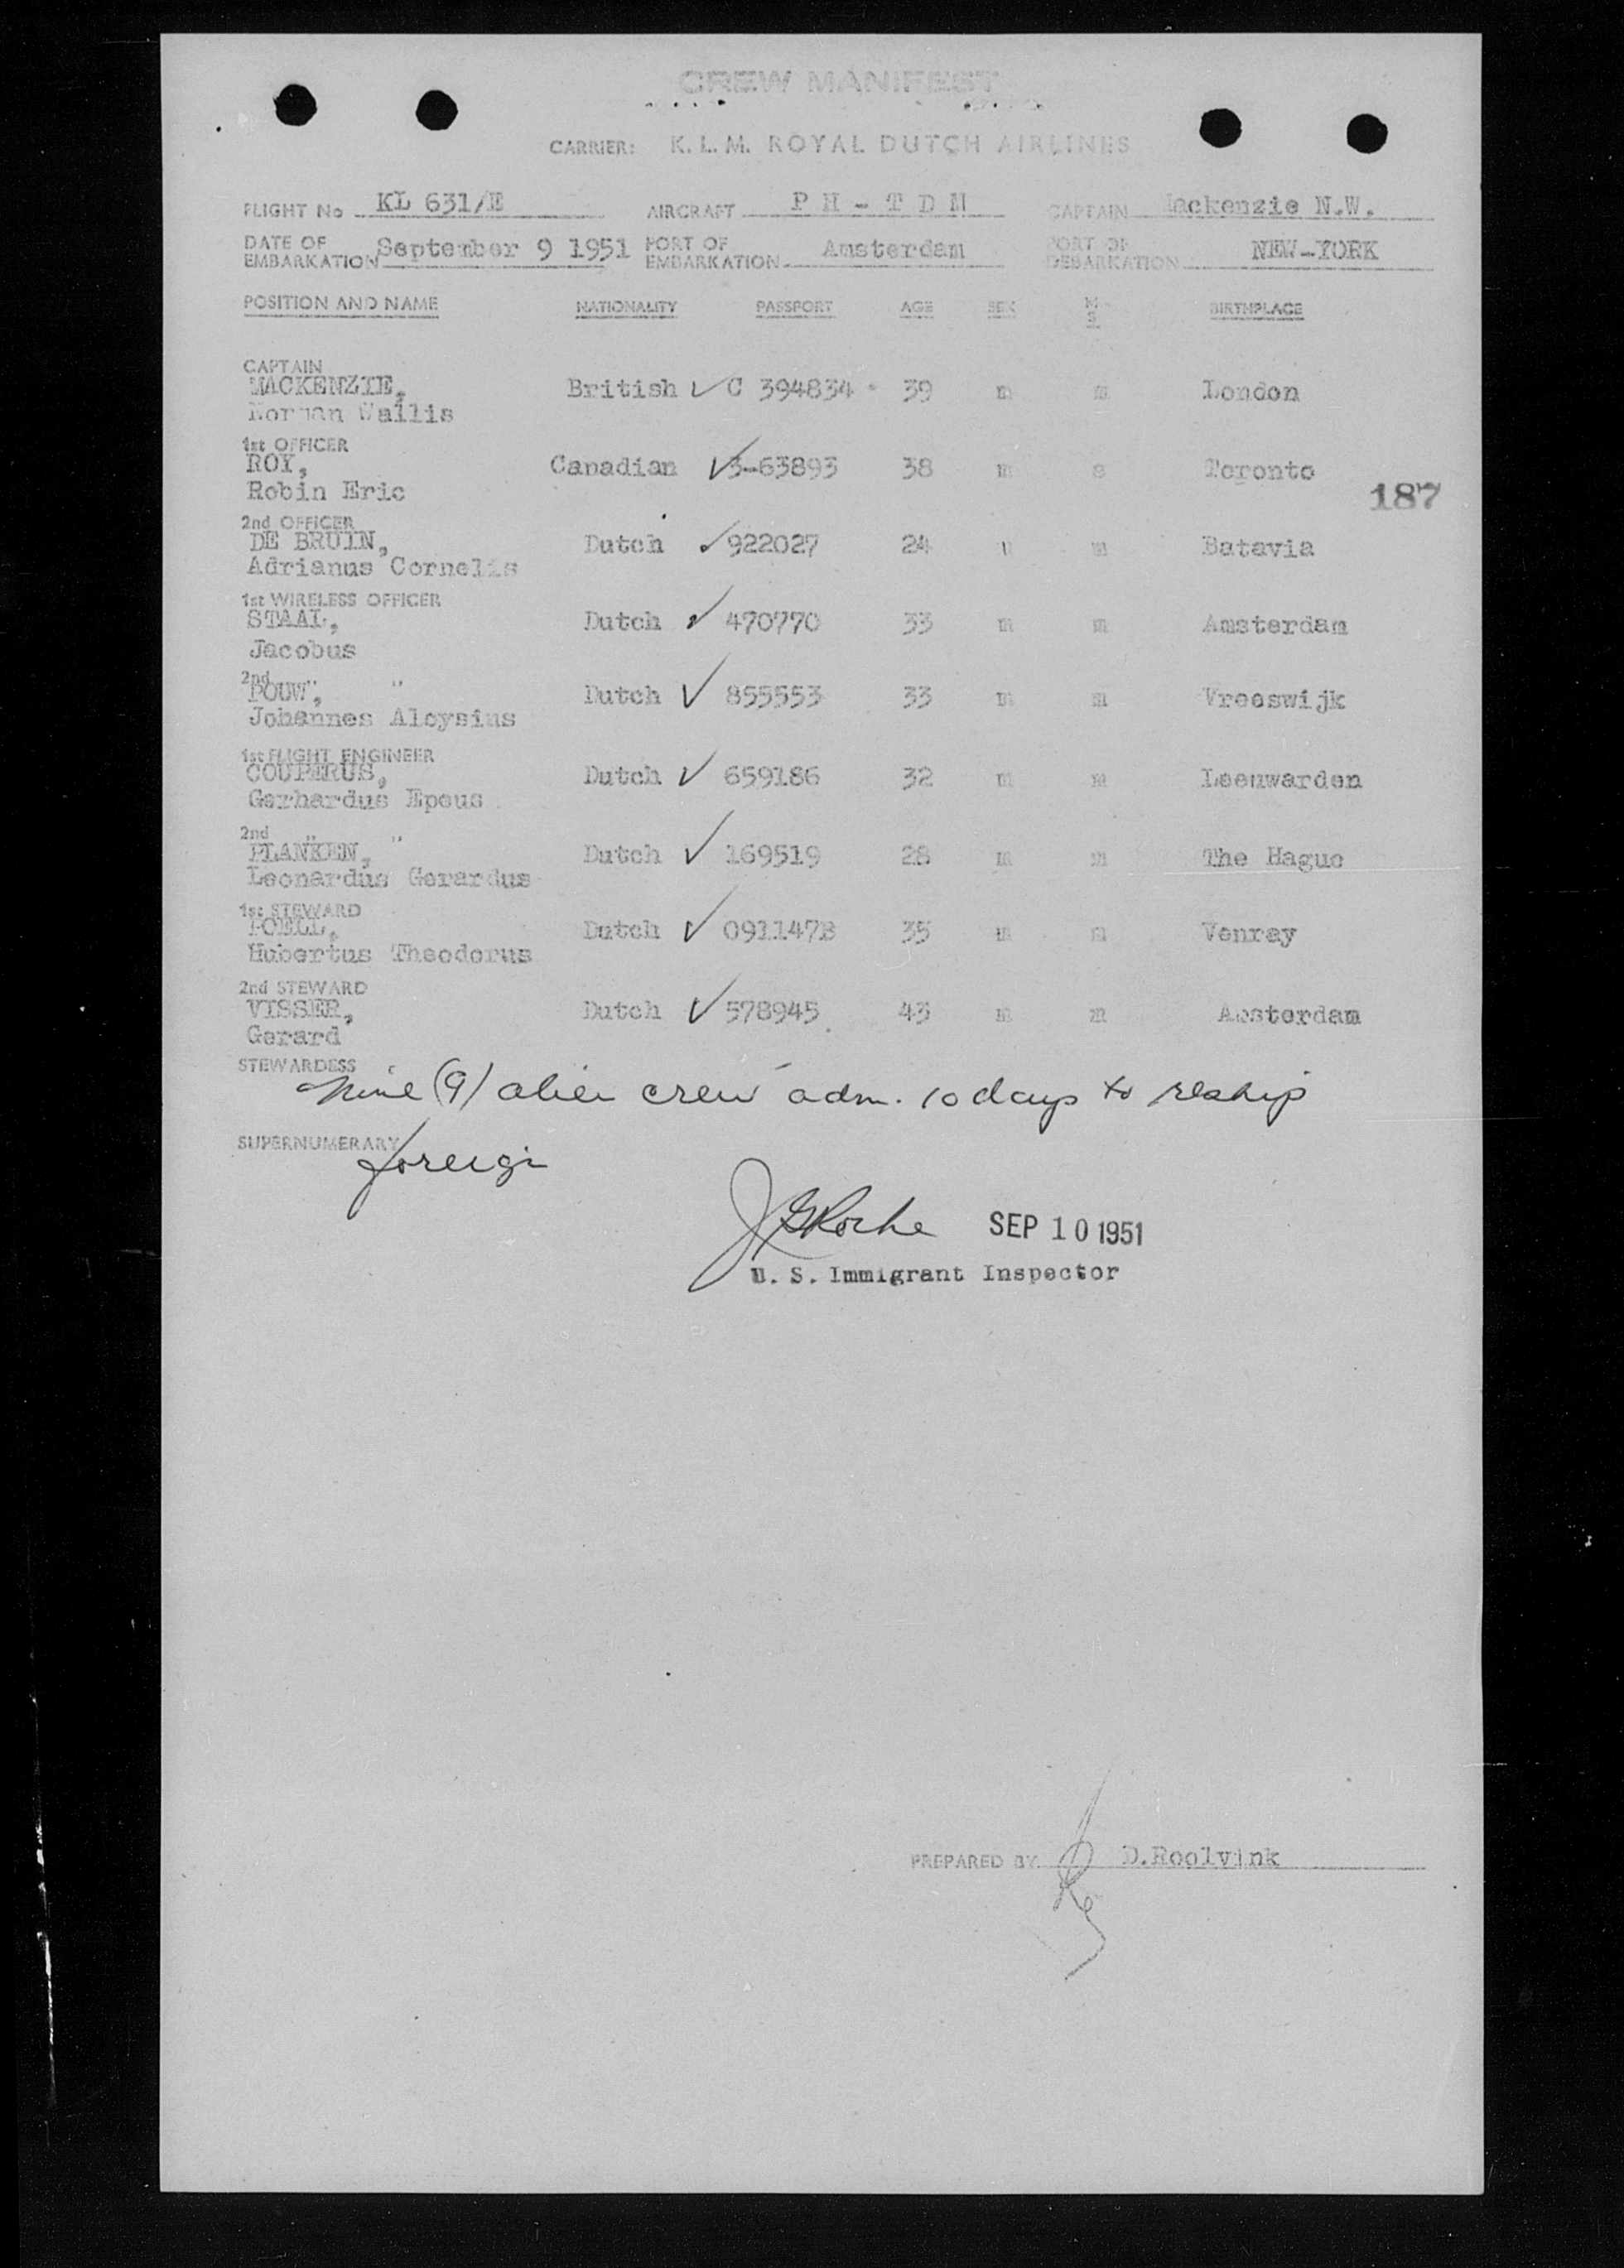 CREW MANIFEST
CARRIER: K. L. M. ROYAL DUTCH AIRLINES
FLIGHT No KL 631/E AIRCRAFT P H - T D M CAPTAIN Mackenzie N.W.
DATE OF EMBARKATION September 9 1951 PORT OF EMBARKATION Amsterdam PORT OF DEBARKATION NEW-YORK
POSITION AND NAME NATIONALITY PASSPORT AGE SEX M S BIRTHPLACE
CAPTAIN
MACKENZIE, British ✓ C 394834 39 m m London
Norman Wallis
1st OFFICER
ROY, Canadian ✓ 3-63893 38 m s Toronto
Robin Eric
187
2nd OFFICER
DE BRUIN, Dutch ✓ 922027 24 m m Batavia
Adrianus Cornelis
1st WIRELESS OFFICER
STAAL, Dutch ✓ 470770 33 m m Amsterdam
Jacobus
2nd " "
POUW, Dutch ✓ 855553 33 m m Vreeswijk
Johannes Aloysius
1st FLIGHT ENGINEER
COUPERUS, Dutch ✓ 659186 32 m m Leeuwarden
Gerhardus Epeus
2nd " "
PLANKEN, Dutch ✓ 169519 28 m m The Hague
Leonardus Gerardus
1st STEWARD
POELL, Dutch ✓ 091147B 35 m m Venray
Hubertus Theodorus
2nd STEWARD
VISSER, Dutch ✓ 578945 43 m m Amsterdam
Gerard
STEWARDESS
Nine (9) alien crew adm. 10 days to reship
SUPERNUMERARY
foreign
J G Roche SEP 10 1951
U. S. Immigrant Inspector
PREPARED BY D.Roolvink